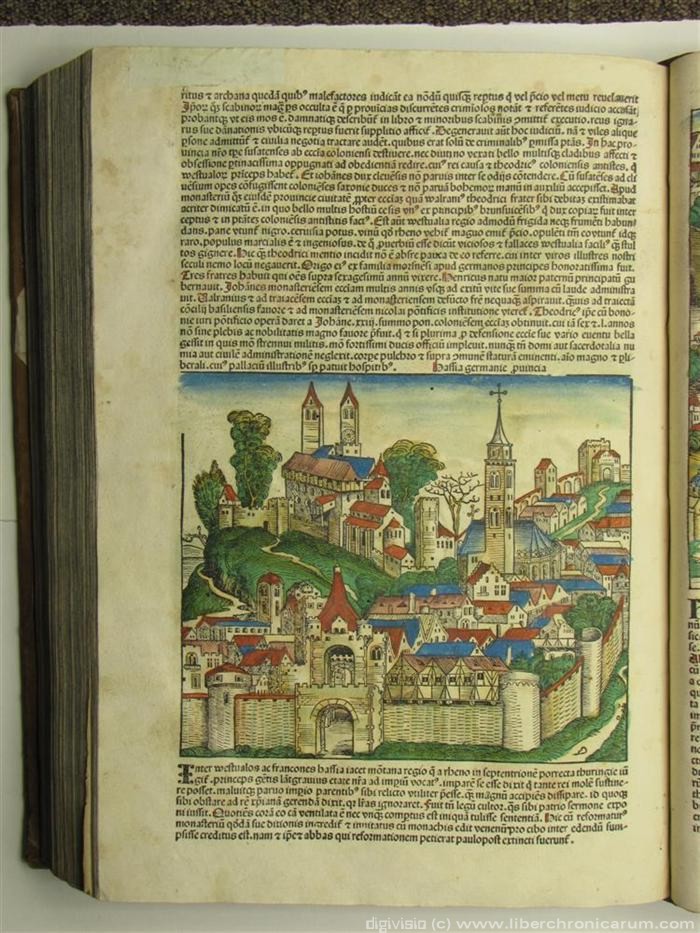 ritus ⁊ archana quedā quibꝰ malefactores iudicāt ea nōdū quisq̄ reptus q̄ vel p̄cio vel metu revelauerit
probantq̄ vt eis mos ē. damnaticq̄ describūt in libro ⁊ minoribus scabinis ꝯmittūt executio. reus igna
rus sue dānationis vbicūq̄ reptus fuerit supplitio afficit. Degenerauit aūt hoc iudiciū. nā ⁊ viles aliqn̄
psone admittūt ⁊ ciuilia negotia tractare audēt. quibus erat solū de criminalibꝰ ꝑmissa ptās. In hac pro
obsessione ꝑtinacissima oppugnati ad obedientiā redire. cuiꝰ rei causa ⁊ theodric coloniensis antistes. q̄
westualoꝝ princeps habet. Et iohānes dux cleuēsis nō paruis inter se odijs cōtendere. Cū susatēses ad cl
uēsium opes cōfugissent coloniēses saxonie duces ⁊ nō paruā bohemoꝝ manū in auxiliū accepissēt. Apud
monasteriū q̄ eiusdē prouincie ciuitatē ꝓpter ecc͞iaꝫ quā walranꝰ theodrici frater sibi debitaꝫ existimabat
aceriter dimicatū ē. in quo bello multis hostiū cesis vnꝰ ex principibꝰ brunsuicēsibꝰ q̄ dux copiaꝝ fuit inter
ceptus ⁊ in ptātes coloniēsis antistitis factꝰ. Est aūt westualia regio admodū frigida neq̄ frumēti habun
dans. pane vtunt nigro. ceruisia potus. vinū qd̄ rheno vehit̄ maguo emit̄ p̄cio. opulēti tm̄ eo vtunt̄ idq̄
raro. populus marcialis ē ⁊ ingeniosus. de q̄ ꝓuerbiū esse dicūt viciosos ⁊ fallaces westualia facilꝰ q̄ stul
tos gignere. Hic q̄ theodrici mentio incidit nō ē abs re pauca de eo referre. cui inter viros illustres nostri
seculi nemo locū negauerit. Origo ei ex familia morsnēsi apud germanos principes honoratissima fuit.
Tres fratres habuit qui oēs supra sexagesimū annū vixere. Henricus natu maior paternū principatū gu
bernauit. Johānes monasteriēsem ecc͞iam multis annis vsq̄ ad exitū vite sue summa cū laude administra
uit. Walranius ⁊ ad traiacēsem ecc͞iaꝫ ⁊ ad monasteriensem defūcto frē nequaq̄ aspirauit. quis ad traiectā
cōcilij basiliensis fauore ⁊ ad monasteriēsem nicolai pōtificis institutione vteret̄. Theodricꝰ ip̄e cū bono
nie iuri pōtificio operā daret a Johāne .xxiij. summo pon. coloniēsem ecc͞iaꝫ obtinuit. cui iā sex ⁊ .l. annos
nō sine plebis ac nobilitatis magno fauore p̄fuit. q̄ ⁊ si plurima ꝓ defensione ecc͞ie sue vario euentu bella
gessit in quis mō strennui militis. mō fortissimi ducis officiū impleuit. nunq̄ tn̄ domi aut sacerdotalia mu
mia aut ciuilē administrationē neglexit. corpe pulchro ⁊ supra ꝯmunē staturā eminenti. aīo magno ⁊ ꝑli
berali. cuiꝰ pallaciū illustribꝰ sꝑ patuit hospitibꝰ. Hassia germanie ꝓuincia
Inter westualos ac francones hassia iacet mōtana regio q̄ a rheno in septentrionē porrecta thuringie iū
git̄. princeps gētis lātgrauius etate nr̄a ad impiū vocatꝰ. imparē se esse dixit q̄ tante rei molē sustine
re posset. maluitq̄ paruo impio parentibꝰ sibi relicto vtiliter p̄esse. q̄ magnū accipiēs dissipare. id quoq̄
sibi obstare ad rē xp̄ianā gerendā dixit. q̄ lr̄as ignoraret. Fuit tn̄ legū cultor. q̄s sibi patrio sermone expo
ni iussit. Quotiēs corā eo cā ventilata ē nec vnq̄ comptus est iniquā tulisse sententiā. Hic cū reformaturꝰ
monasteriū qd̄dā sue ditionis
psisse creditus est. nam ⁊ ip̄e ⁊ abbas qui reformationem petierat paulopost extincti fuerunt̄.
digivisio (c) www.liberchronicarum.com